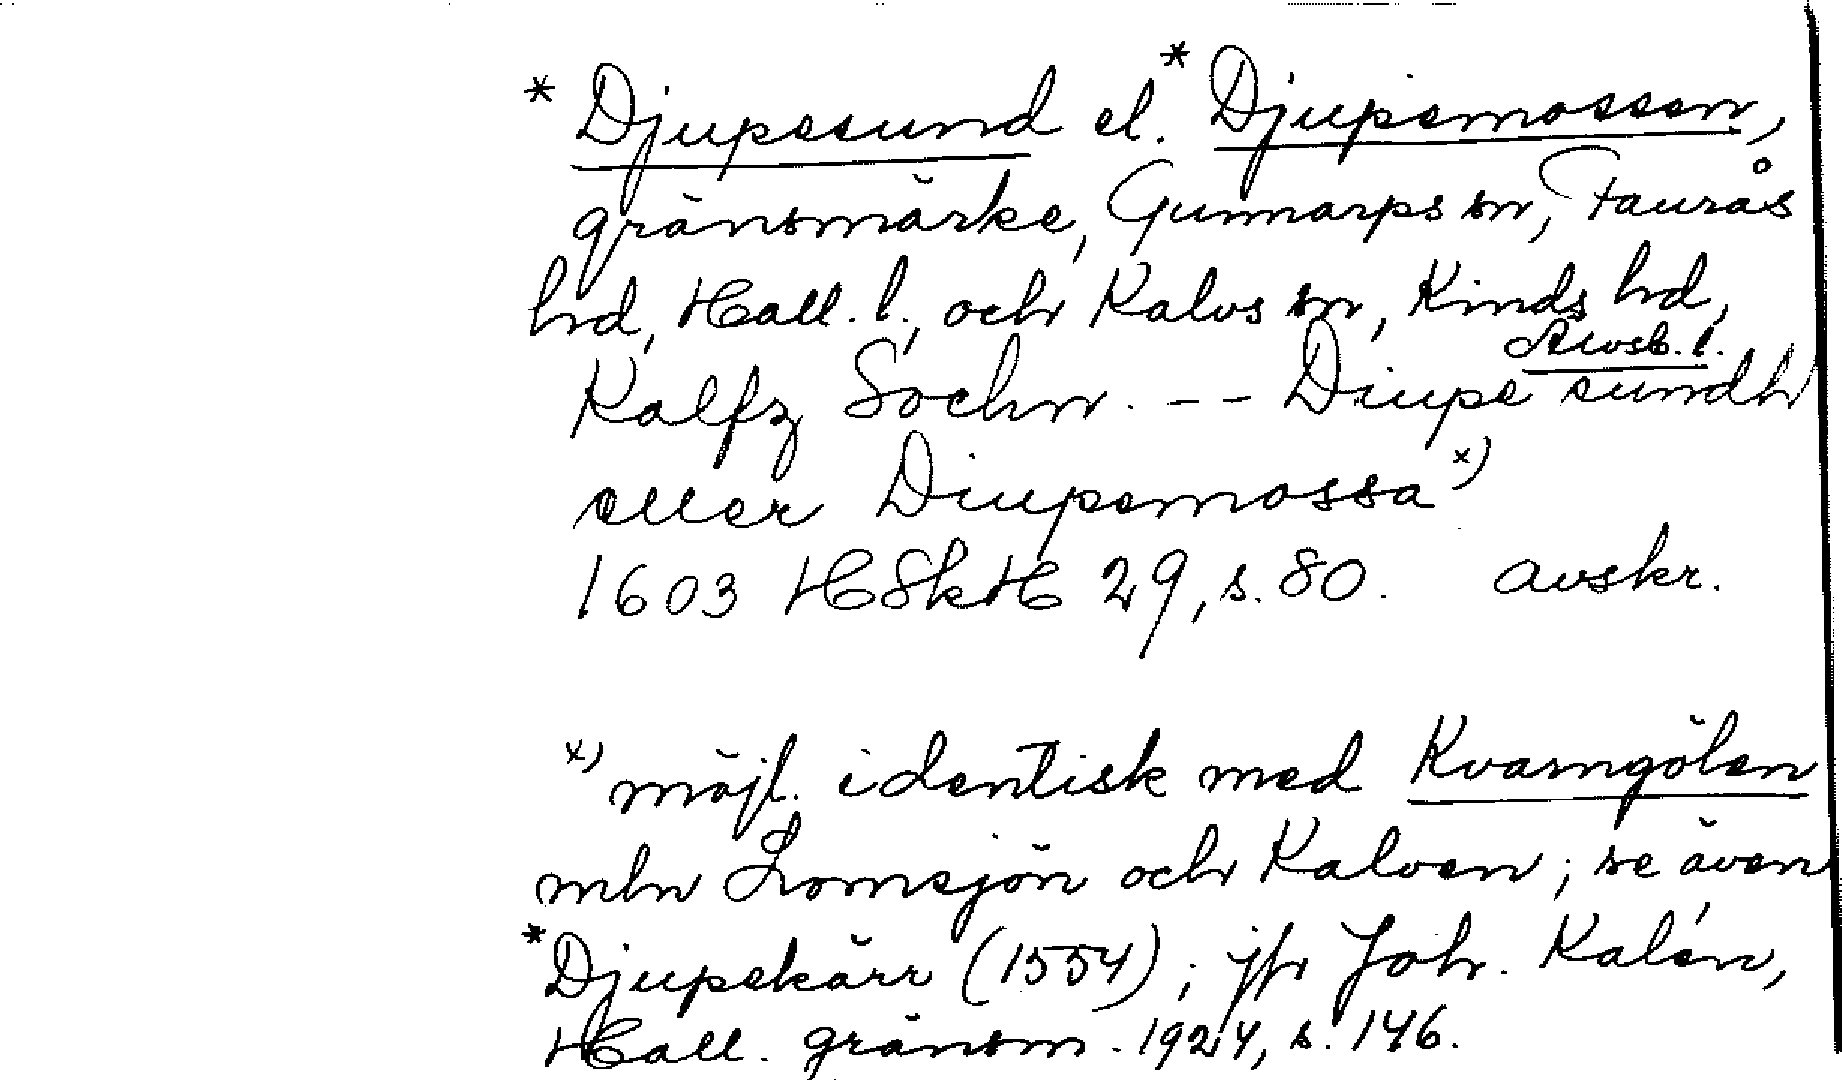 * Djupesund el. * Djupemossen,
gränsmärke, Gunnarps sn, Faurås
hrd, Hall. l., och Kalvs sn, Kinds hrd,
Älvsb. l.
Kalfz Sochn. -- Diupe sundh
eller Diupemossa x)
1603 HSkH 29, s. 80. avskr.
x) möjl. identisk med Kvarngölen
mln Lomsjön och Kalven; se även
* Djupekärr (1554); jfr Joh. Kalén,
Hall. gränsm. 1924, s. 146.